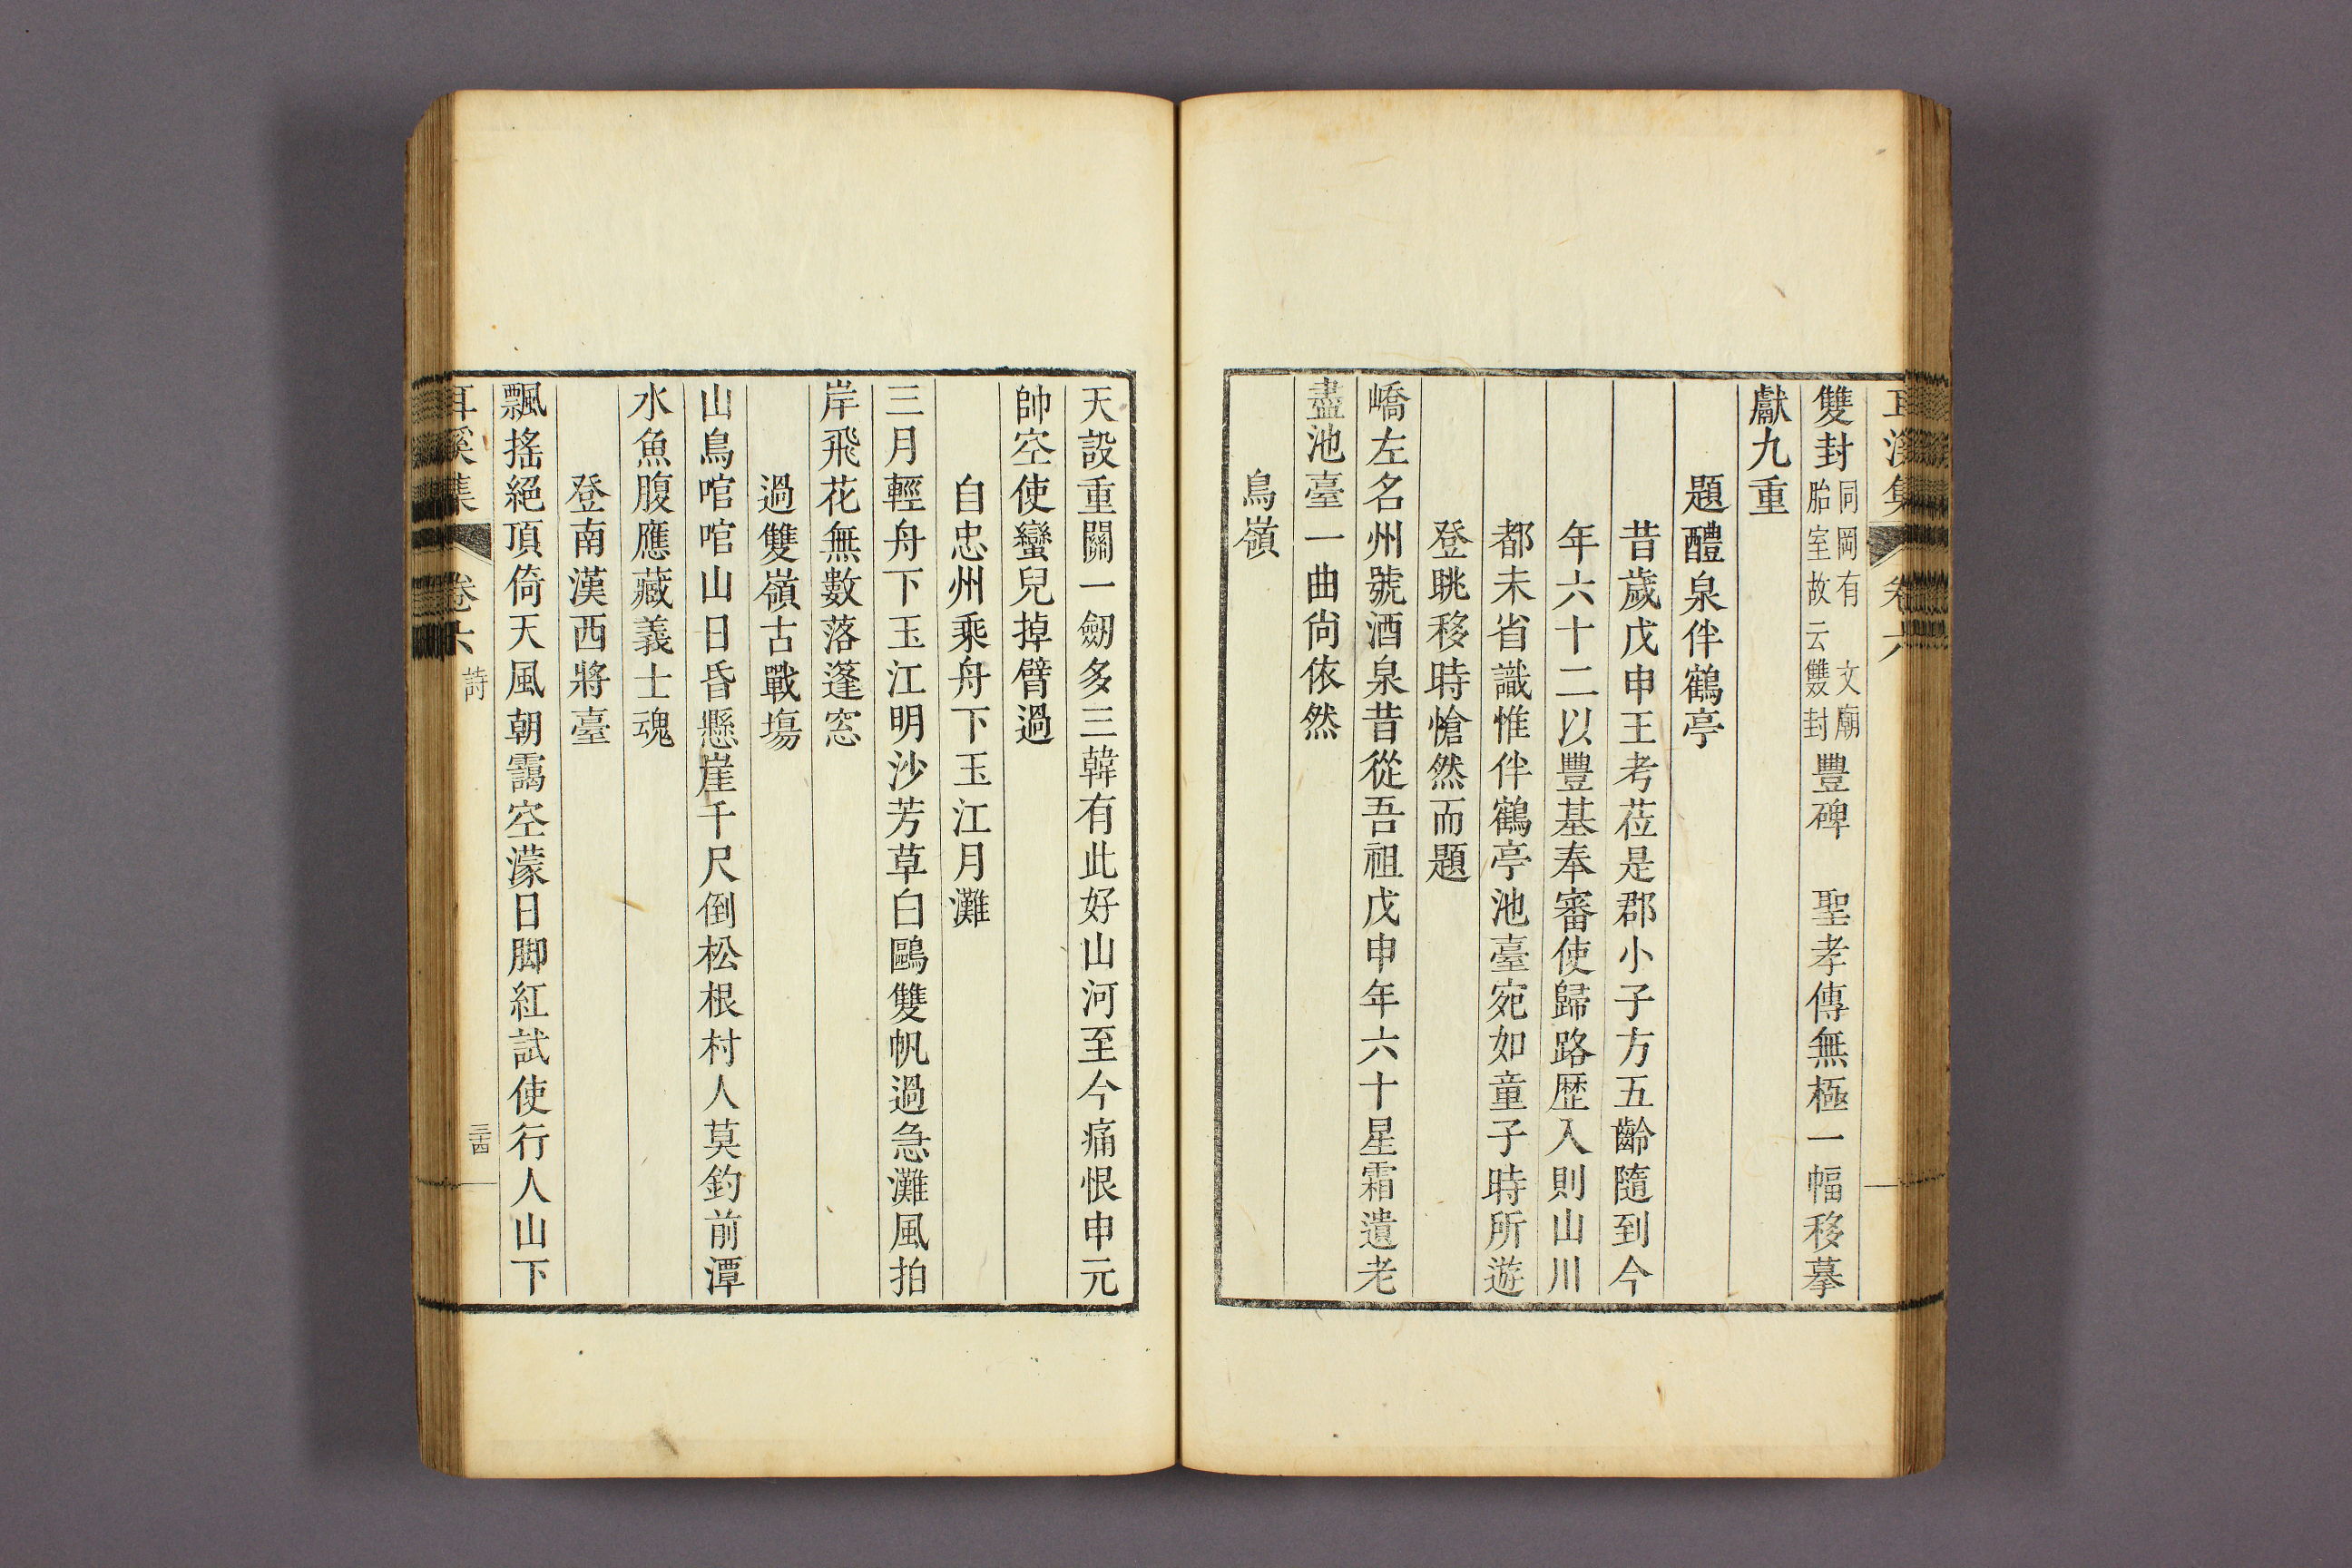 耳溪集 卷六
雙封同岡有 文廟胎室故云雙封豐碑 聖孝傳無極一幅移摹
獻九重
題醴泉伴鶴亭
昔歲戊申王考莅是郡小子方五齡隨到今
年六十二以豐基奉審使歸路歷入則山川
都未省識惟伴鶴亭池臺宛如童子時所遊
登眺移時愴然而題
嶠左名州號酒泉昔從吾祖戊申年六十星霜遺老
盡池臺一曲尙依然
鳥嶺
天設重關一劒多三韓有此好山河至今痛恨申元
帥空使蠻兒掉臂過
自忠州乘舟下玉江月灘
三月輕舟下玉江明沙芳草白鷗雙帆過急灘風拍
岸飛花無數落蓬窓
過雙嶺古戰塲
山鳥啼啼山日昏懸崖千尺倒松根村人莫釣前潭
水魚腹應藏義士魂
登南漢西將臺
飄搖絕頂倚天風朝靄空濛日脚紅試使行人山下
耳溪集 卷六 詩 三十四